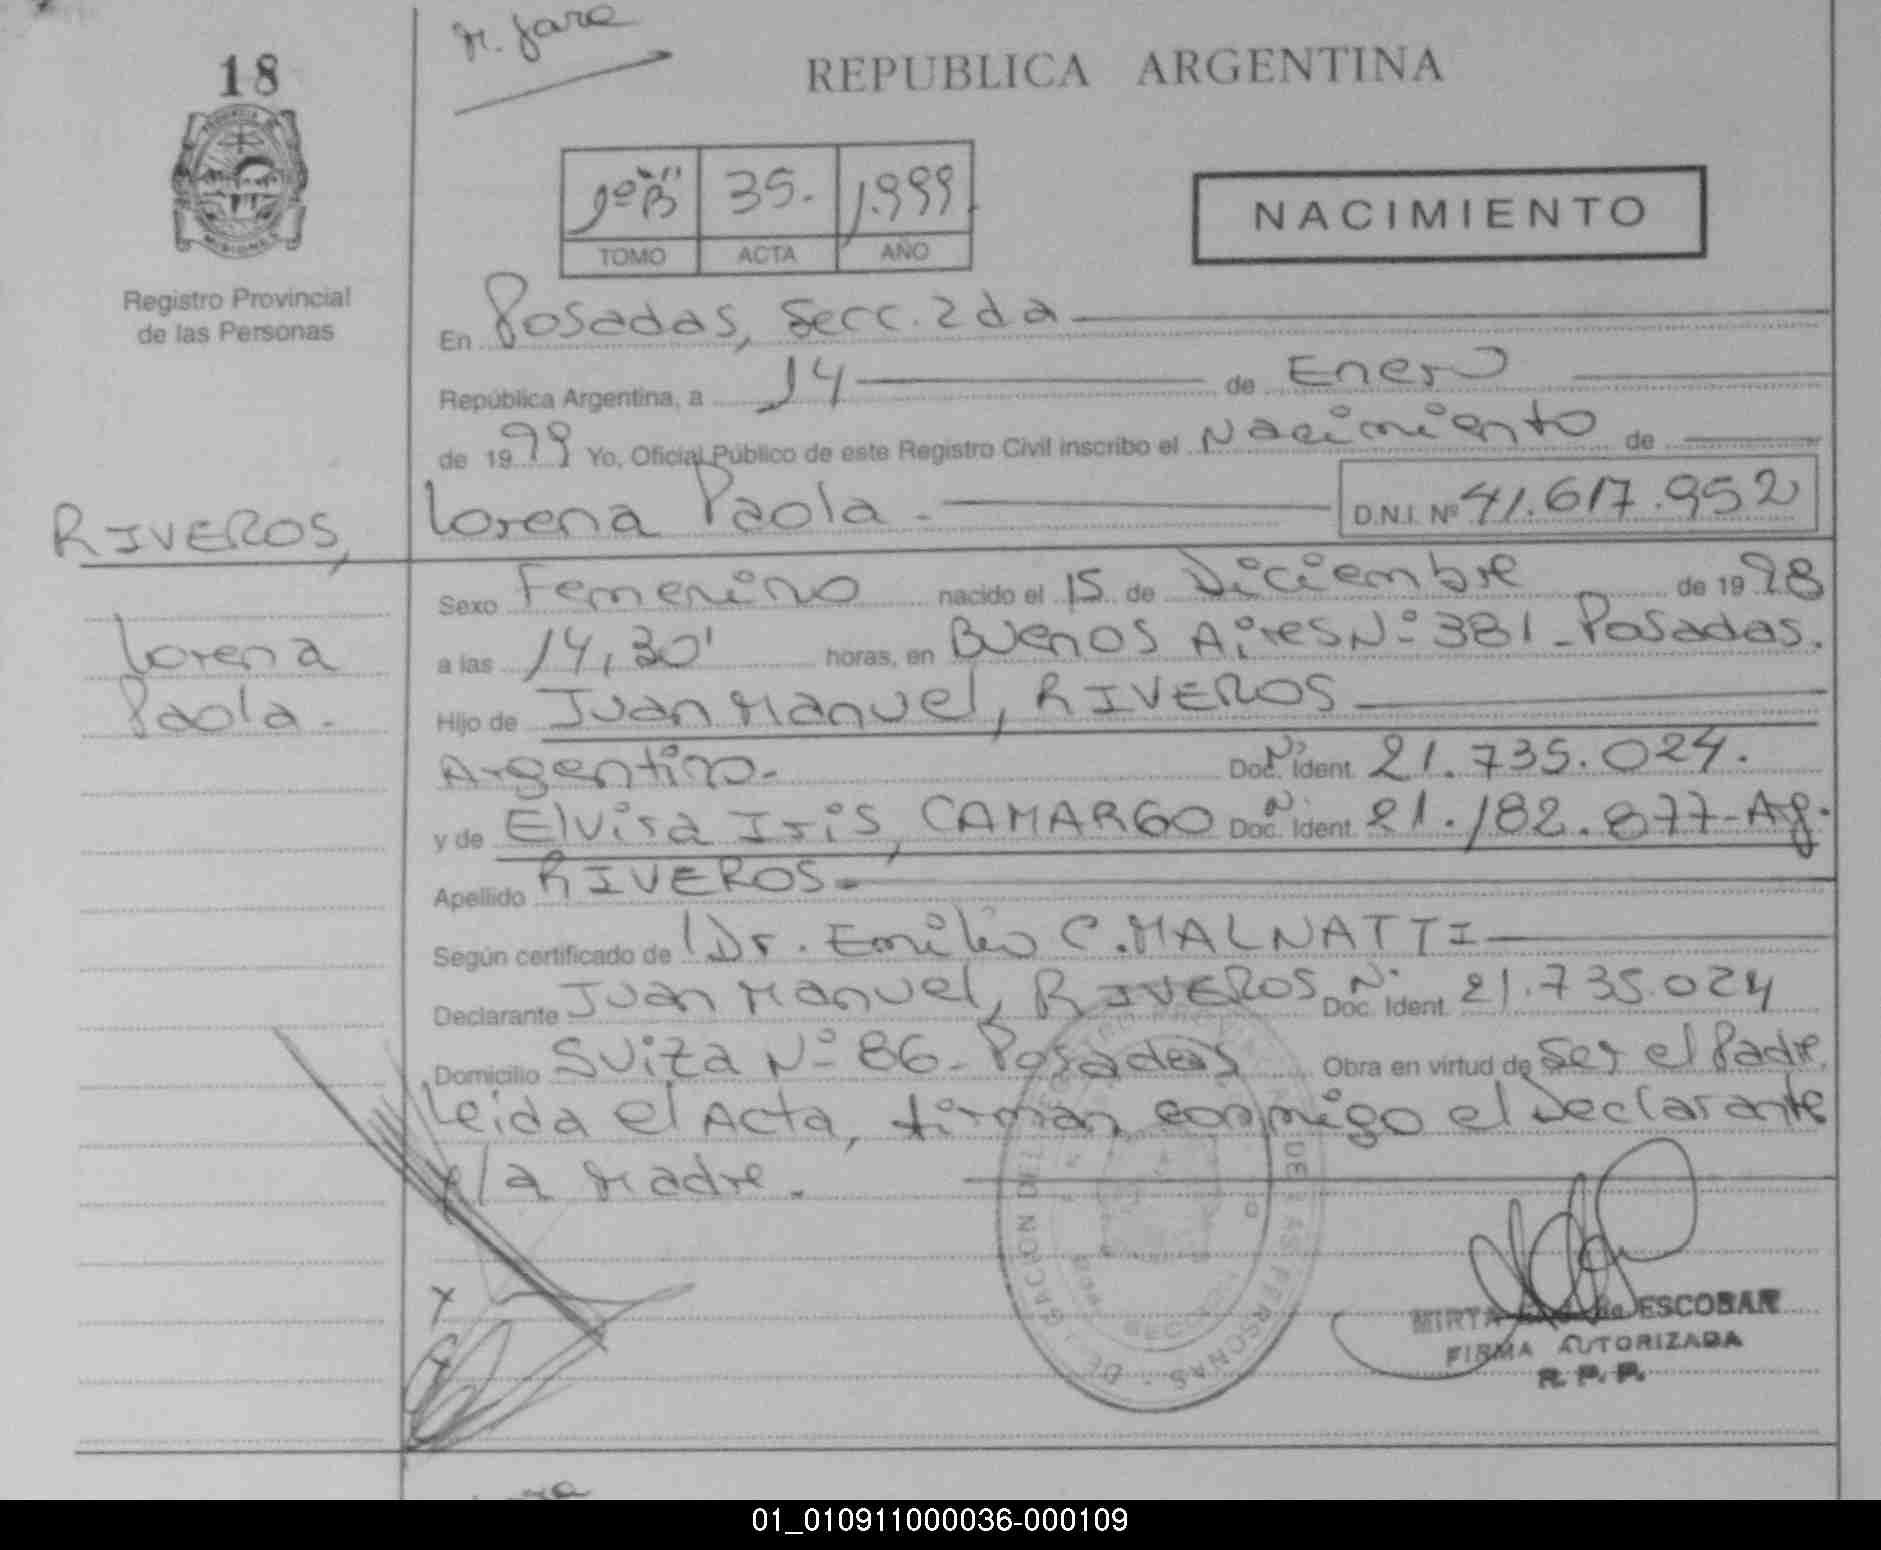 18
REPUBLICA ARGENTINA
1º "B" 35. 1.999
TOMO ACTA AÑO
NACIMIENTO
Registro Provincial
de las Personas
En Posadas, Secc. 2da
República Argentina, a 14 de Enero
de 1999 Yo, Oficial Público de este Registro Civil inscribo el Nacimiento de
RIVEROS, Lorena Paola. D.N.I. Nº 41.617.952
Sexo Femenino nacido el 15 de Diciembre de 1998
Lorena
a las 14,30' horas, en Buenos Aires Nº 381 - Posadas.
Paola.
Hijo de Juan Manuel, RIVEROS
Argentino. Nº Doc. Ident. 21.735.024.
y de Elvira Iris, CAMARGO Nº Doc. Ident. 21.182.877 - Ag.
Apellido RIVEROS.
Según certificado de Dr. Emilio C. MALNATTI
Declarante Juan Manuel, RIVEROS Nº Doc. Ident. 21.735.024
Domicilio Suiza Nº 86 - Posadas Obra en virtud de Ser el Padre.
Leida el Acta, firman conmigo el Declarante
y la Madre.
MIRTA de ESCOBAR
FIRMA AUTORIZADA
R. P. P.
01_010911000036-000109